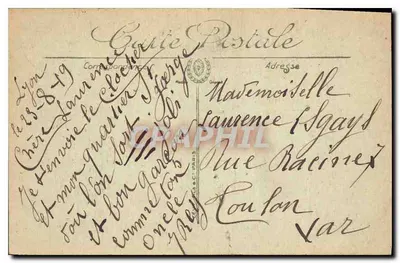 Carte Postale
Correspondance
Adresse
Lyon
le 23-8-19
Chère Laurence
Je t'envoie le Clocher
et mon quartier St
d'où l'on sort George
et bon garçon
comme ton
Oncle
Mademoiselle
Laurence Esgays
Rue Racine 7
Toulon
Var